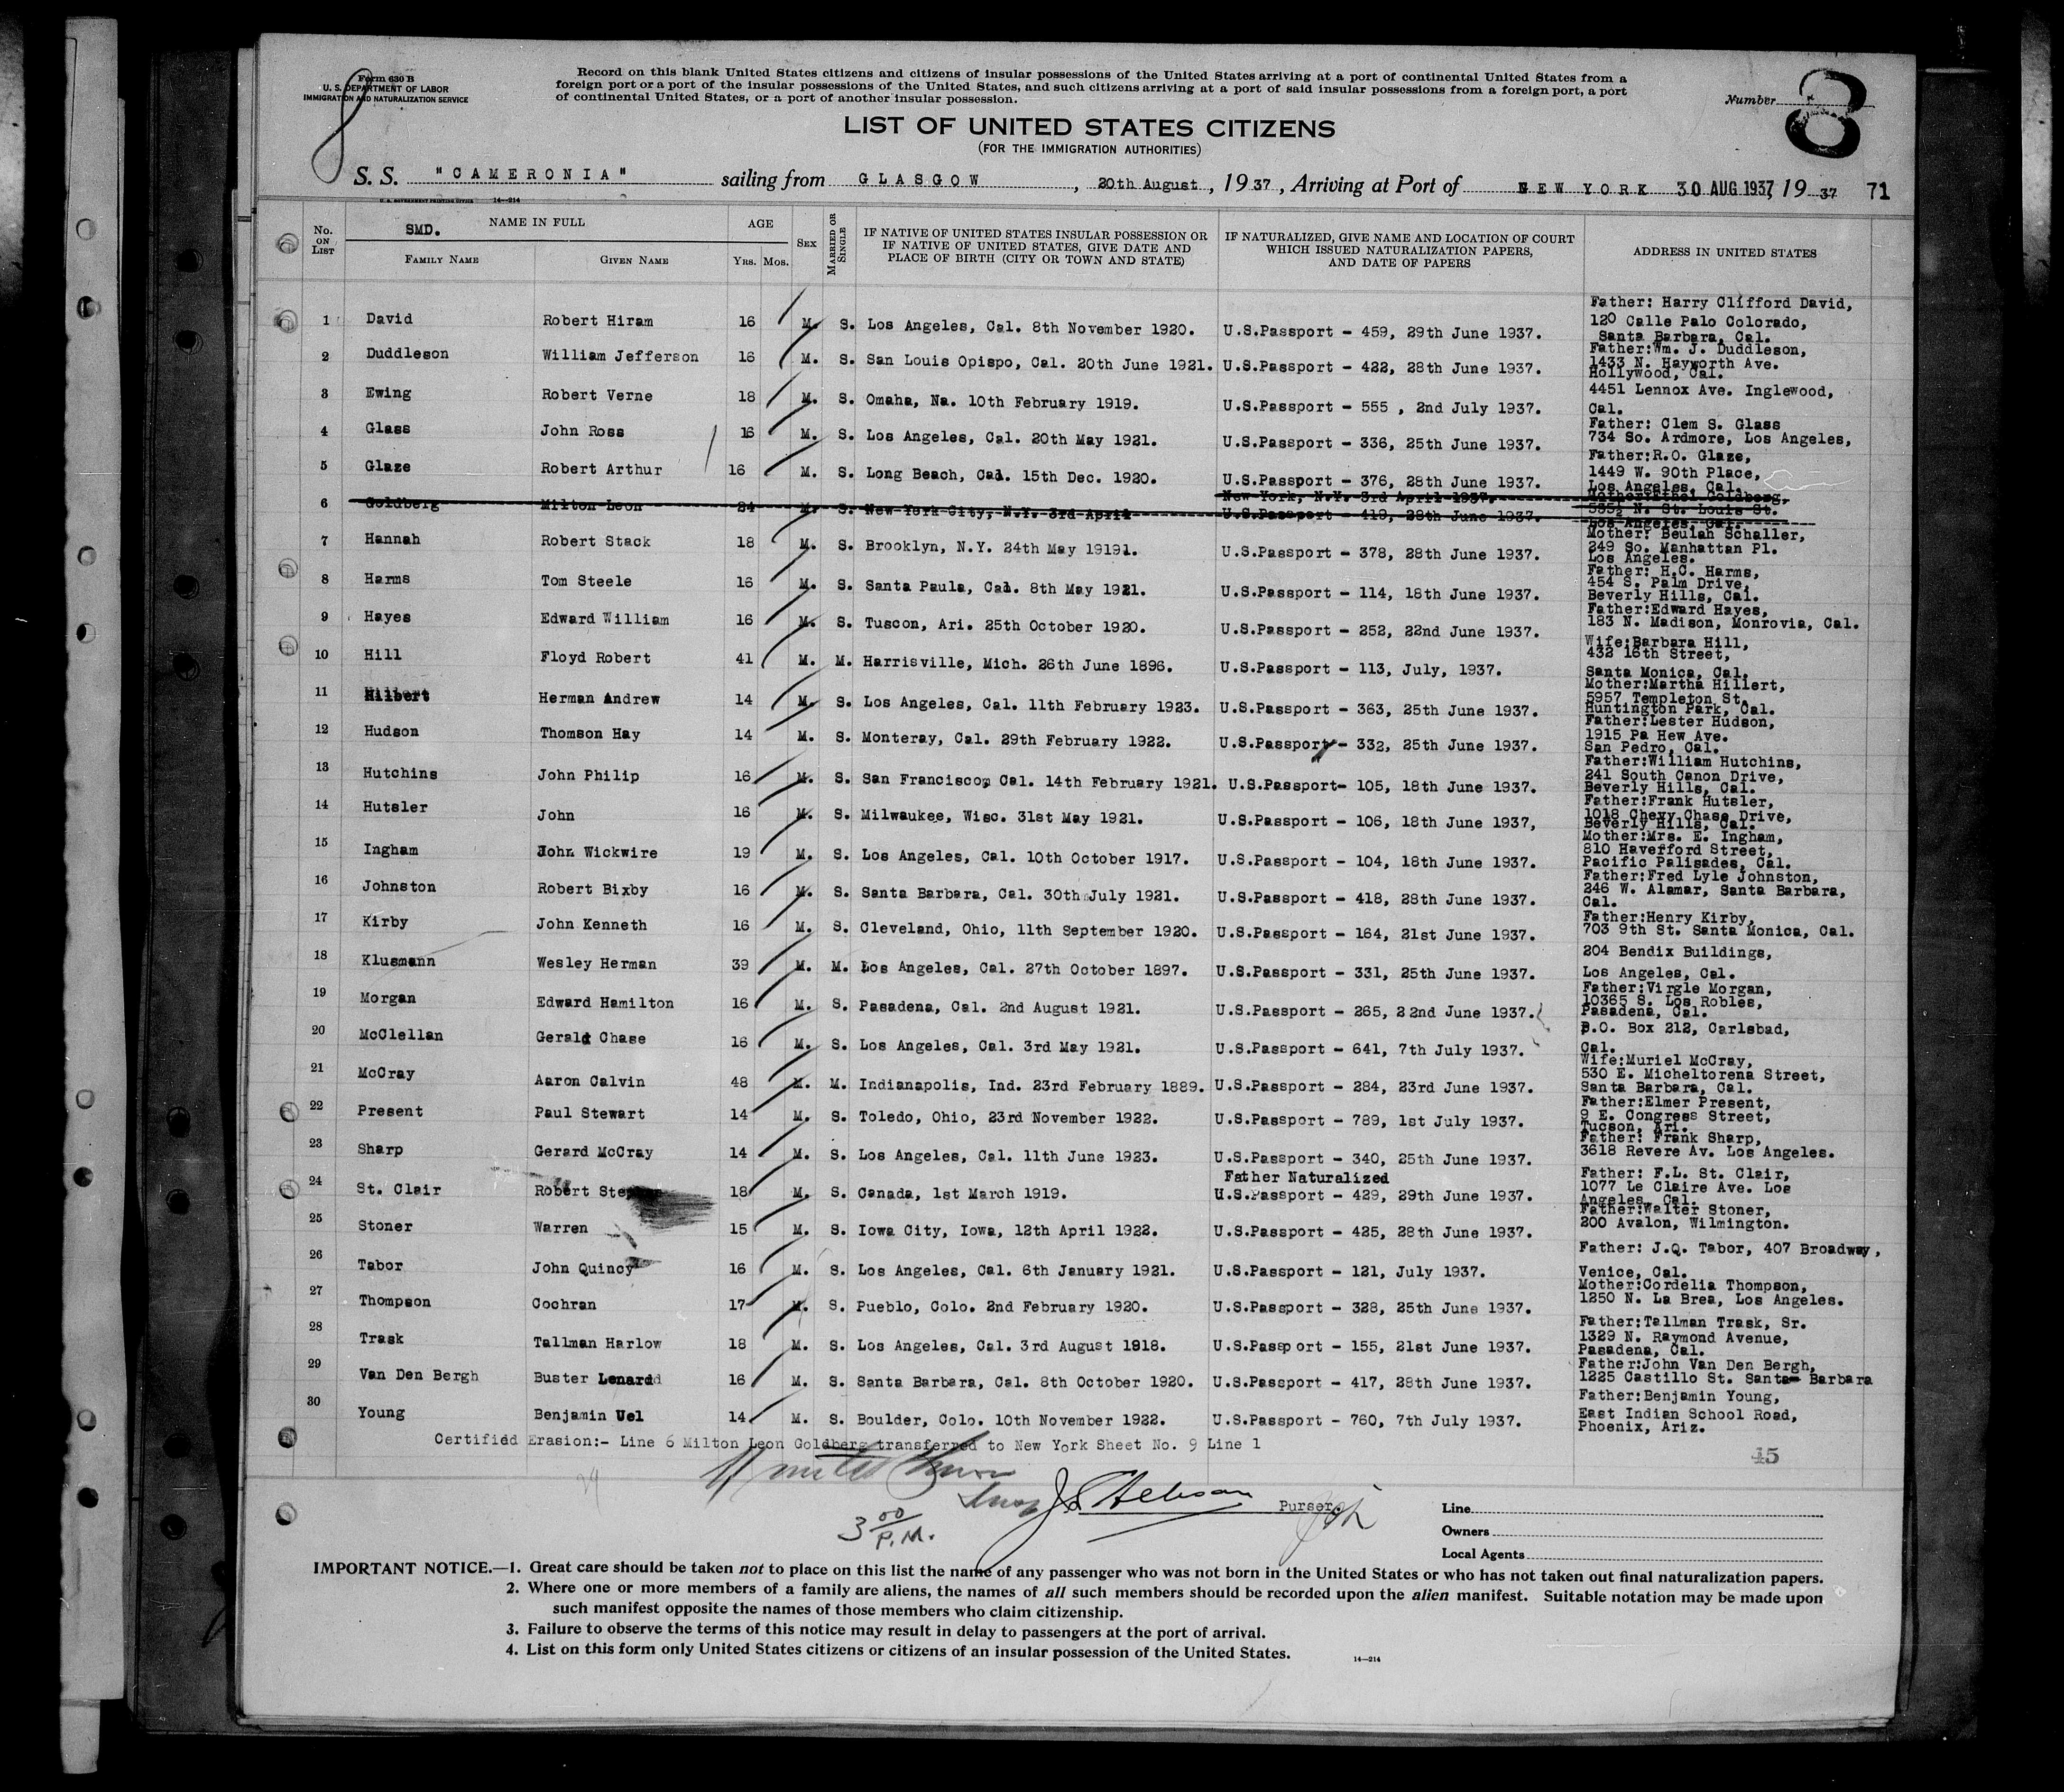 Form 630 B
U. S. DEPARTMENT OF LABOR
IMMIGRATION AND NATURALIZATION SERVICE
8
Record on this blank United States citizens and citizens of insular possessions of the United States arriving at a port of continental United States from a
foreign port or a port of the insular possessions of the United States, and such citizens arriving at a port of said insular possessions from a foreign port, a port
of continental United States, or a port of another insular possession.
Number 8
LIST OF UNITED STATES CITIZENS
(FOR THE IMMIGRATION AUTHORITIES)
S. S. "CAMERONIA" sailing from GLASGOW, 20th August, 1937, Arriving at Port of NEW YORK 30 AUG 1937, 1937 71
U. S. GOVERNMENT PRINTING OFFICE 14—214
No. ON LIST
SMD. NAME IN FULL
FAMILY NAME GIVEN NAME
AGE
YRS. MOS.
SEX
MARRIED OR SINGLE
IF NATIVE OF UNITED STATES INSULAR POSSESSION OR
IF NATIVE OF UNITED STATES, GIVE DATE AND
PLACE OF BIRTH (CITY OR TOWN AND STATE)
IF NATURALIZED, GIVE NAME AND LOCATION OF COURT
WHICH ISSUED NATURALIZATION PAPERS,
AND DATE OF PAPERS
ADDRESS IN UNITED STATES
1 David Robert Hiram 16 M. S. Los Angeles, Cal. 8th November 1920. U.S.Passport - 459, 29th June 1937. Father: Harry Clifford David,
120 Calle Palo Colorado,
Santa Barbara, Cal.
2 Duddleson William Jefferson 16 M. S. San Louis Opispo, Cal. 20th June 1921. U.S.Passport - 422, 28th June 1937. Father:Wm. J. Duddleson,
1433 N. Hayworth Ave.
Hollywood, Cal.
3 Ewing Robert Verne 18 M. S. Omaha, Na. 10th February 1919. U.S.Passport - 555 , 2nd July 1937. 4451 Lennox Ave. Inglewood,
Cal.
4 Glass John Ross 16 M. S. Los Angeles, Cal. 20th May 1921. U.S.Passport - 336, 25th June 1937. Father: Clem S. Glass
734 So. Ardmore, Los Angeles,
5 Glaze Robert Arthur 16 M. S. Long Beach, Cal. 15th Dec. 1920. U.S.Passport - 376, 28th June 1937. Father:R.O. Glaze,
1449 W. 90th Place,
Los Angeles, Cal.
6 Goldberg Milton Leon 24 M. S. New York City, N.Y. 3rd April New York, N.Y. 3rd April 1937.
U.S.Passport - 419, 28th June 1937. Mother:Ethel Goldberg,
535½ N. St. Louis St.
Los Angeles, Cal.
7 Hannah Robert Stack 18 M. S. Brooklyn, N.Y. 24th May 19191. U.S.Passport - 378, 28th June 1937. Mother: Beulah Schaller,
249 So. Manhattan Pl.
Los Angeles.
8 Harms Tom Steele 16 M. S. Santa Paula, Cal. 8th May 1921. U.S.Passport - 114, 18th June 1937. Father: H.C. Harms,
454 S. Palm Drive,
Beverly Hills, Cal.
9 Hayes Edward William 16 M. S. Tuscon, Ari. 25th October 1920. U.S.Passport - 252, 22nd June 1937. Father:Edward Hayes,
183 N. Madison, Monrovia, Cal.
10 Hill Floyd Robert 41 M. M. Harrisville, Mich. 26th June 1896. U.S.Passport - 113, July, 1937. Wife:Barbara Hill,
432 16th Street,
Santa Monica, Cal.
11 Herman Andrew 14 M. S. Los Angeles, Cal. 11th February 1923. U.S.Passport - 363, 25th June 1937. Mother:Martha Hillert,
5957 Templeton St.
Huntington Park, Cal.
12 Hudson Thomson Hay 14 M. S. Monteray, Cal. 29th February 1922. U.S.Passport - 332, 25th June 1937. Father:Lester Hudson,
1915 Pa Hew Ave.
San Pedro, Cal.
13 Hutchins John Philip 16 M. S. San Francisco, Cal. 14th February 1921. U.S.Passport- 105, 18th June 1937. Father:William Hutchins,
241 South Canon Drive,
Beverly Hills, Cal.
14 Hutsler John 16 M. S. Milwaukee, Wisc. 31st May 1921. U.S.Passport - 106, 18th June 1937, Father:Frank Hutsler,
1018 Chevy Chase Drive,
Beverly Hills, Cal.
15 Ingham John Wickwire 19 M. S. Los Angeles, Cal. 10th October 1917. U.S.Passport - 104, 18th June 1937. Mother:Mrs. E. Ingham,
810 Haverford Street,
Pacific Palisades, Cal.
16 Johnston Robert Bixby 16 M. S. Santa Barbara, Cal. 30th July 1921. U.S.Passport - 418, 28th June 1937. Father:Fred Lyle Johnston,
246 W. Alamar, Santa Barbara,
Cal.
17 Kirby John Kenneth 16 M. S. Cleveland, Ohio, 11th September 1920. U.S.Passport - 164, 21st June 1937. Father:Henry Kirby,
703 9th St. Santa Monica, Cal.
18 Klusmann Wesley Herman 39 M. M. Los Angeles, Cal. 27th October 1897. U.S.Passport - 331, 25th June 1937. 204 Bendix Buildings,
Los Angeles, Cal.
19 Morgan Edward Hamilton 16 M. S. Pasadena, Cal. 2nd August 1921. U.S.Passport - 265, 22nd June 1937. Father:Virgle Morgan,
10365 S. Los Robles,
Pasadena, Cal.
20 McClellan Gerald Chase 16 M. S. Los Angeles, Cal. 3rd May 1921. U.S.Passport - 641, 7th July 1937. P.O. Box 212, Carlsbad,
Cal.
21 McCray Aaron Calvin 48 M. M. Indianapolis, Ind. 23rd February 1889. U.S.Passport - 284, 23rd June 1937. Wife:Muriel McCray,
530 E. Micheltorena Street,
Santa Barbara, Cal.
22 Present Paul Stewart 14 M. S. Toledo, Ohio, 23rd November 1922. U.S.Passport - 789, 1st July 1937. Father:Elmer Present,
9 E. Congress Street,
Tucson, Ari.
23 Sharp Gerard McCray 14 M. S. Los Angeles, Cal. 11th June 1923. U.S.Passport - 340, 25th June 1937. Father: Frank Sharp,
3618 Revere Av. Los Angeles.
24 St. Clair Robert 18 M. S. Canada, 1st March 1919. Father Naturalized
U.S.Passport - 429, 29th June 1937. Father: F.L. St. Clair,
1077 Le Claire Ave. Los
Angeles, Cal.
25 Stoner Warren 15 M. S. Iowa City, Iowa, 12th April 1922. U.S.Passport - 425, 28th June 1937. Father:Walter Stoner,
200 Avalon, Wilmington.
26 Tabor John Quincy 16 M. S. Los Angeles, Cal. 6th January 1921. U.S.Passport - 121, July 1937. Father: J.Q. Tabor, 407 Broadway,
Venice, Cal.
27 Thompson Cochran 17 M. S. Pueblo, Colo. 2nd February 1920. U.S.Passport - 328, 25th June 1937. Mother:Cordelia Thompson,
1250 N. La Brea, Los Angeles.
28 Trask Tallman Harlow 18 M. S. Los Angeles, Cal. 3rd August 1918. U.S.Passport - 155, 21st June 1937. Father:Tallman Trask, Sr.
1329 N. Raymond Avenue,
Pasadena, Cal.
29 Van Den Bergh Buster Lenard 16 M. S. Santa Barbara, Cal. 8th October 1920. U.S.Passport - 417, 28th June 1937. Father:John Van Den Bergh,
1225 Castillo St. Santa Barbara
30 Young Benjamin Uel 14 M. S. Boulder, Colo. 10th November 1922. U.S.Passport - 760, 7th July 1937. Father:Benjamin Young,
East Indian School Road,
Phoenix, Ariz.
Certified Erasion:- Line 6 Milton Leon Goldberg transferred to New York Sheet No. 9 Line 1
45
29
Purser.
3 00 P.M.
Line
Owners
Local Agents
IMPORTANT NOTICE.—1. Great care should be taken not to place on this list the name of any passenger who was not born in the United States or who has not taken out final naturalization papers.
2. Where one or more members of a family are aliens, the names of all such members should be recorded upon the alien manifest. Suitable notation may be made upon
such manifest opposite the names of those members who claim citizenship.
3. Failure to observe the terms of this notice may result in delay to passengers at the port of arrival.
4. List on this form only United States citizens or citizens of an insular possession of the United States.
14—214